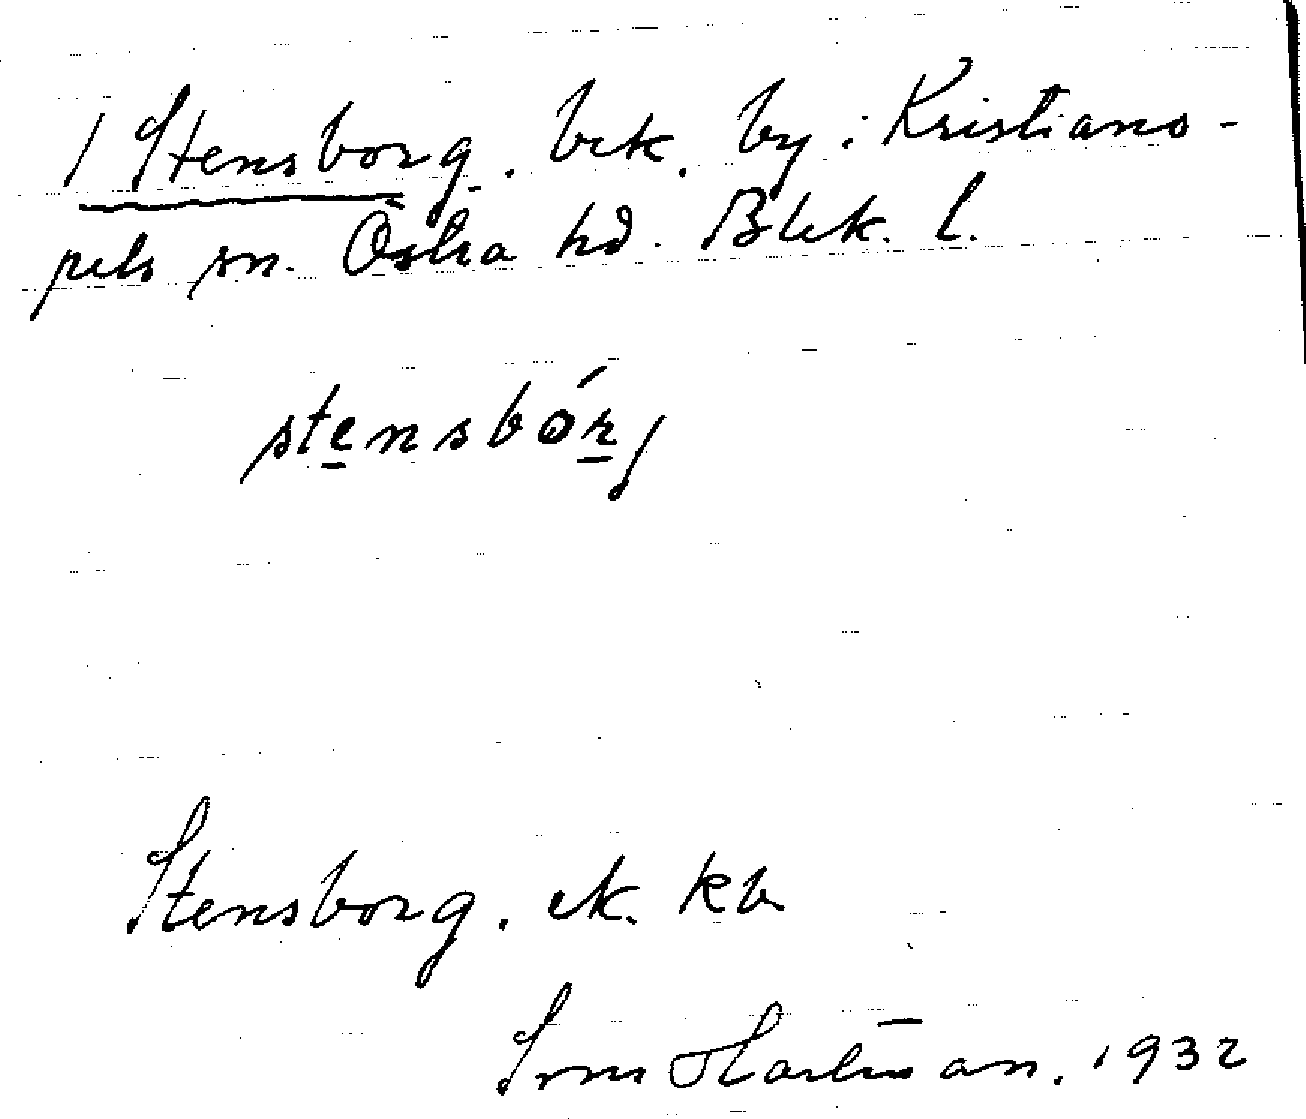 1 Stensborg. bek. by: Kristiano-
pels sn. Östra hd. Blek. l.
stensbórj
Stensborg. ek. kb
Hartman. 1932